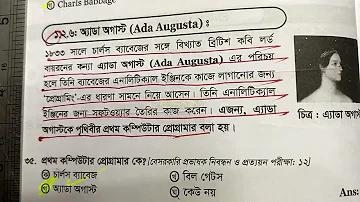 গ) Charls Babbage
১২.৬: অ্যাডা অগাস্ট (Ada Augusta) :
১৮৩৩ সালে চার্লস ব্যাবেজের সঙ্গে বিখ্যাত ব্রিটিশ কবি লর্ড
বায়রনের কন্যা এ্যাডা অগাস্ট (Ada Augusta) এর পরিচয়
হলে তিনি ব্যাবেজের এনালিটিক্যাল ইঞ্জিনকে কাজে লাগানোর জন্য
'প্রোগ্রামিং'-এর ধারণা সামনে নিয়ে আসেন। তিনি এনালিটিক্যাল
ইঞ্জিনের জন্য সফটওয়্যার তৈরির কাজ করেন। এজন্য, এ্যাডা
অগাস্টকে পৃথিবীর প্রথম কম্পিউটার প্রোগ্রামার বলা হয়।
চিত্র : এ্যাডা অগাস্ট
৩৫. প্রথম কম্পিউটার প্রোগ্রামার কে? [বেসরকারি প্রভাষক নিবন্ধন ও প্রত্যয়ন পরীক্ষা: ১২]
চার্লস ব্যাবেজ
বিল গেটস
এ্যাডা অগাস্ট
কেউ নয়
Ans: